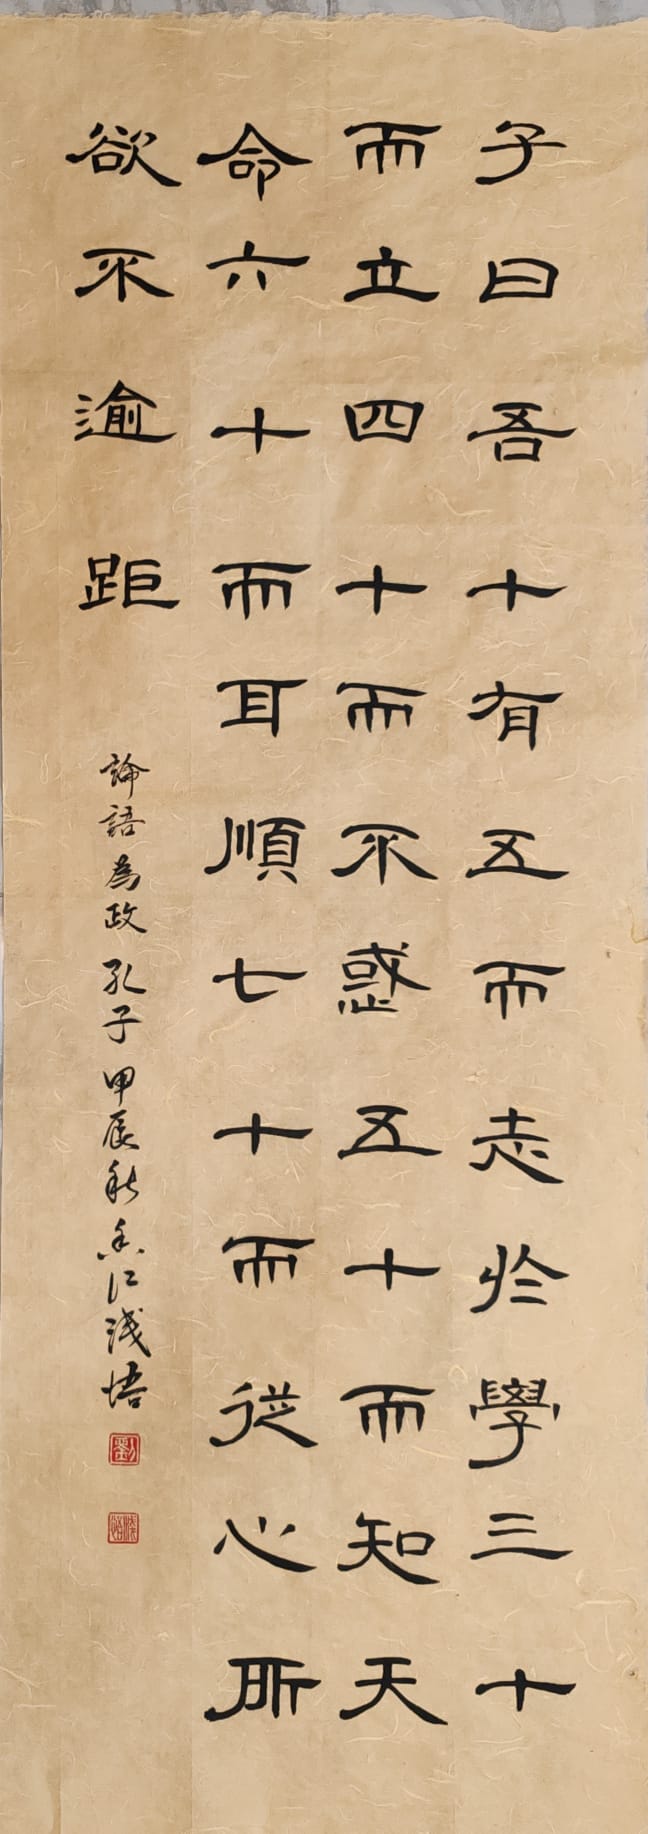 子曰吾十有五而志於學三十
而立四十而不惑五十而知天
命六十而耳順七十而從心所
欲不逾距
論語為政孔子甲辰秋香江淺悟
劉
淺悟